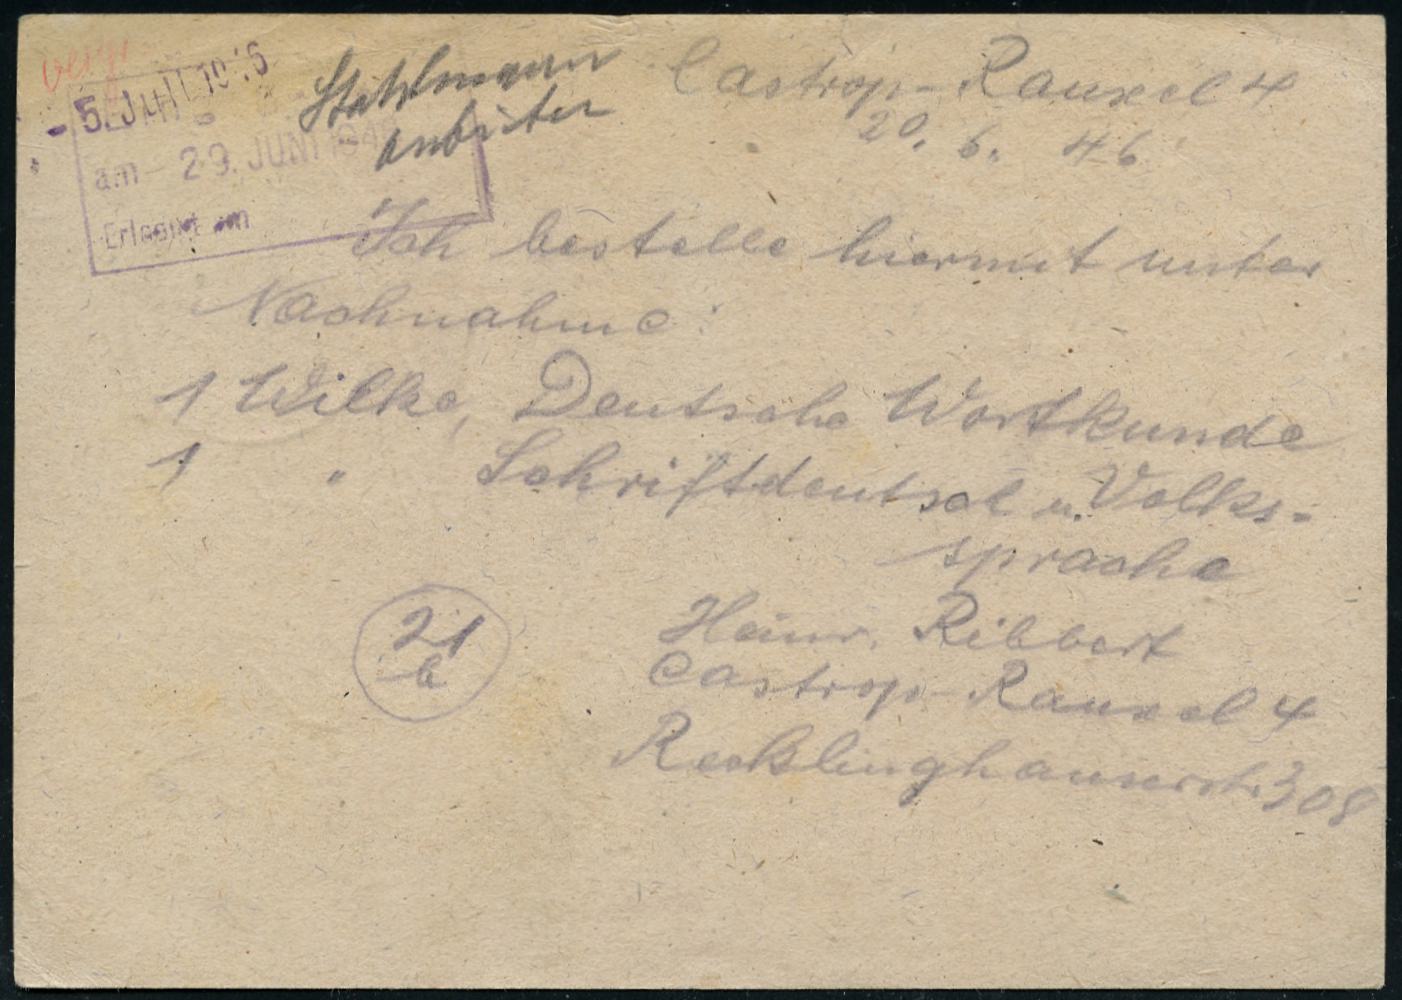 verg.
5. JULI 1946
am 29. JUNI 194
Erledigt am
Stahlmann
anbieten
Castrop-Rauxel 4
20. 6. 46
Ich bestelle hiermit unter
Nachnahme:
1 Wilke, Deutsche Wortkunde
1 " Schriftdeutsch u. Volks-
sprache
21
b
Heinr. Ribbert
Castrop-Rauxel 4
Recklinghauserstr. 308